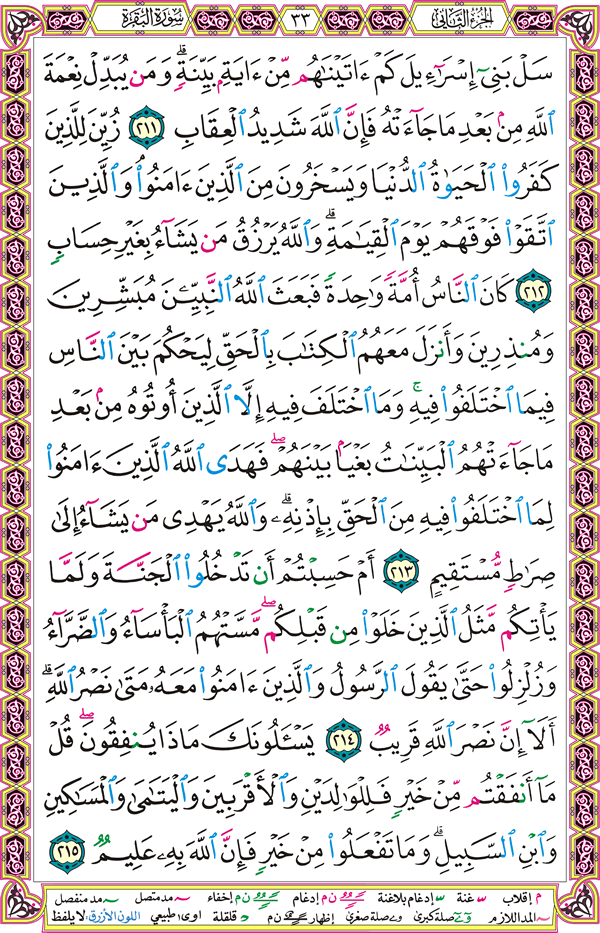 الجزء الثاني ٣٣ سورة البقرة
سَلْ بَنِىٓ إِسْرَٰٓءِيلَ كَمْ ءَاتَيْنَٰهُم مِّنْ ءَايَةٍۭ بَيِّنَةٍۗ وَمَن يُبَدِّلْ نِعْمَةَ
ٱللَّهِ مِنۢ بَعْدِ مَا جَآءَتْهُ فَإِنَّ ٱللَّهَ شَدِيدُ ٱلْعِقَابِ ٢١١ زُيِّنَ لِلَّذِينَ
كَفَرُوا۟ ٱلْحَيَوٰةُ ٱلدُّنْيَا وَيَسْخَرُونَ مِنَ ٱلَّذِينَ ءَامَنُوا۟ۘ وَٱلَّذِينَ
ٱتَّقَوْا۟ فَوْقَهُمْ يَوْمَ ٱلْقِيَٰمَةِۗ وَٱللَّهُ يَرْزُقُ مَن يَشَآءُ بِغَيْرِ حِسَابٍ
٢١٢ كَانَ ٱلنَّاسُ أُمَّةً وَٰحِدَةً فَبَعَثَ ٱللَّهُ ٱلنَّبِيِّـۧنَ مُبَشِّرِينَ
وَمُنذِرِينَ وَأَنزَلَ مَعَهُمُ ٱلْكِتَٰبَ بِٱلْحَقِّ لِيَحْكُمَ بَيْنَ ٱلنَّاسِ
فِيمَا ٱخْتَلَفُوا۟ فِيهِۚ وَمَا ٱخْتَلَفَ فِيهِ إِلَّا ٱلَّذِينَ أُوتُوهُ مِنۢ بَعْدِ
مَا جَآءَتْهُمُ ٱلْبَيِّنَٰتُ بَغْيًۢا بَيْنَهُمْۖ فَهَدَى ٱللَّهُ ٱلَّذِينَ ءَامَنُوا۟
لِمَا ٱخْتَلَفُوا۟ فِيهِ مِنَ ٱلْحَقِّ بِإِذْنِهِۦۗ وَٱللَّهُ يَهْدِى مَن يَشَآءُ إِلَىٰ
صِرَٰطٍ مُّسْتَقِيمٍ ٢١٣ أَمْ حَسِبْتُمْ أَن تَدْخُلُوا۟ ٱلْجَنَّةَ وَلَمَّا
يَأْتِكُم مَّثَلُ ٱلَّذِينَ خَلَوْا۟ مِن قَبْلِكُمۖ مَّسَّتْهُمُ ٱلْبَأْسَآءُ وَٱلضَّرَّآءُ
وَزُلْزِلُوا۟ حَتَّىٰ يَقُولَ ٱلرَّسُولُ وَٱلَّذِينَ ءَامَنُوا۟ مَعَهُۥ مَتَىٰ نَصْرُ ٱللَّهِۗ
أَلَآ إِنَّ نَصْرَ ٱللَّهِ قَرِيبٌ ٢١٤ يَسْـَٔلُونَكَ مَاذَا يُنفِقُونَۖ قُلْ
مَآ أَنفَقْتُم مِّنْ خَيْرٍ فَلِلْوَٰلِدَيْنِ وَٱلْأَقْرَبِينَ وَٱلْيَتَٰمَىٰ وَٱلْمَسَٰكِينِ
وَٱبْنِ ٱلسَّبِيلِۗ وَمَا تَفْعَلُوا۟ مِنْ خَيْرٍ فَإِنَّ ٱللَّهَ بِهِۦ عَلِيمٌ ٢١٥
م إقلاب غنة إدغام بلاغنة ن م إدغام ن م إخفاء مد متصل مد منفصل
المد اللازم صلة كبرى صلة صغرى إظهار ن م قلقلة اوى طبيعي اللون الأزرق: لا يلفظ